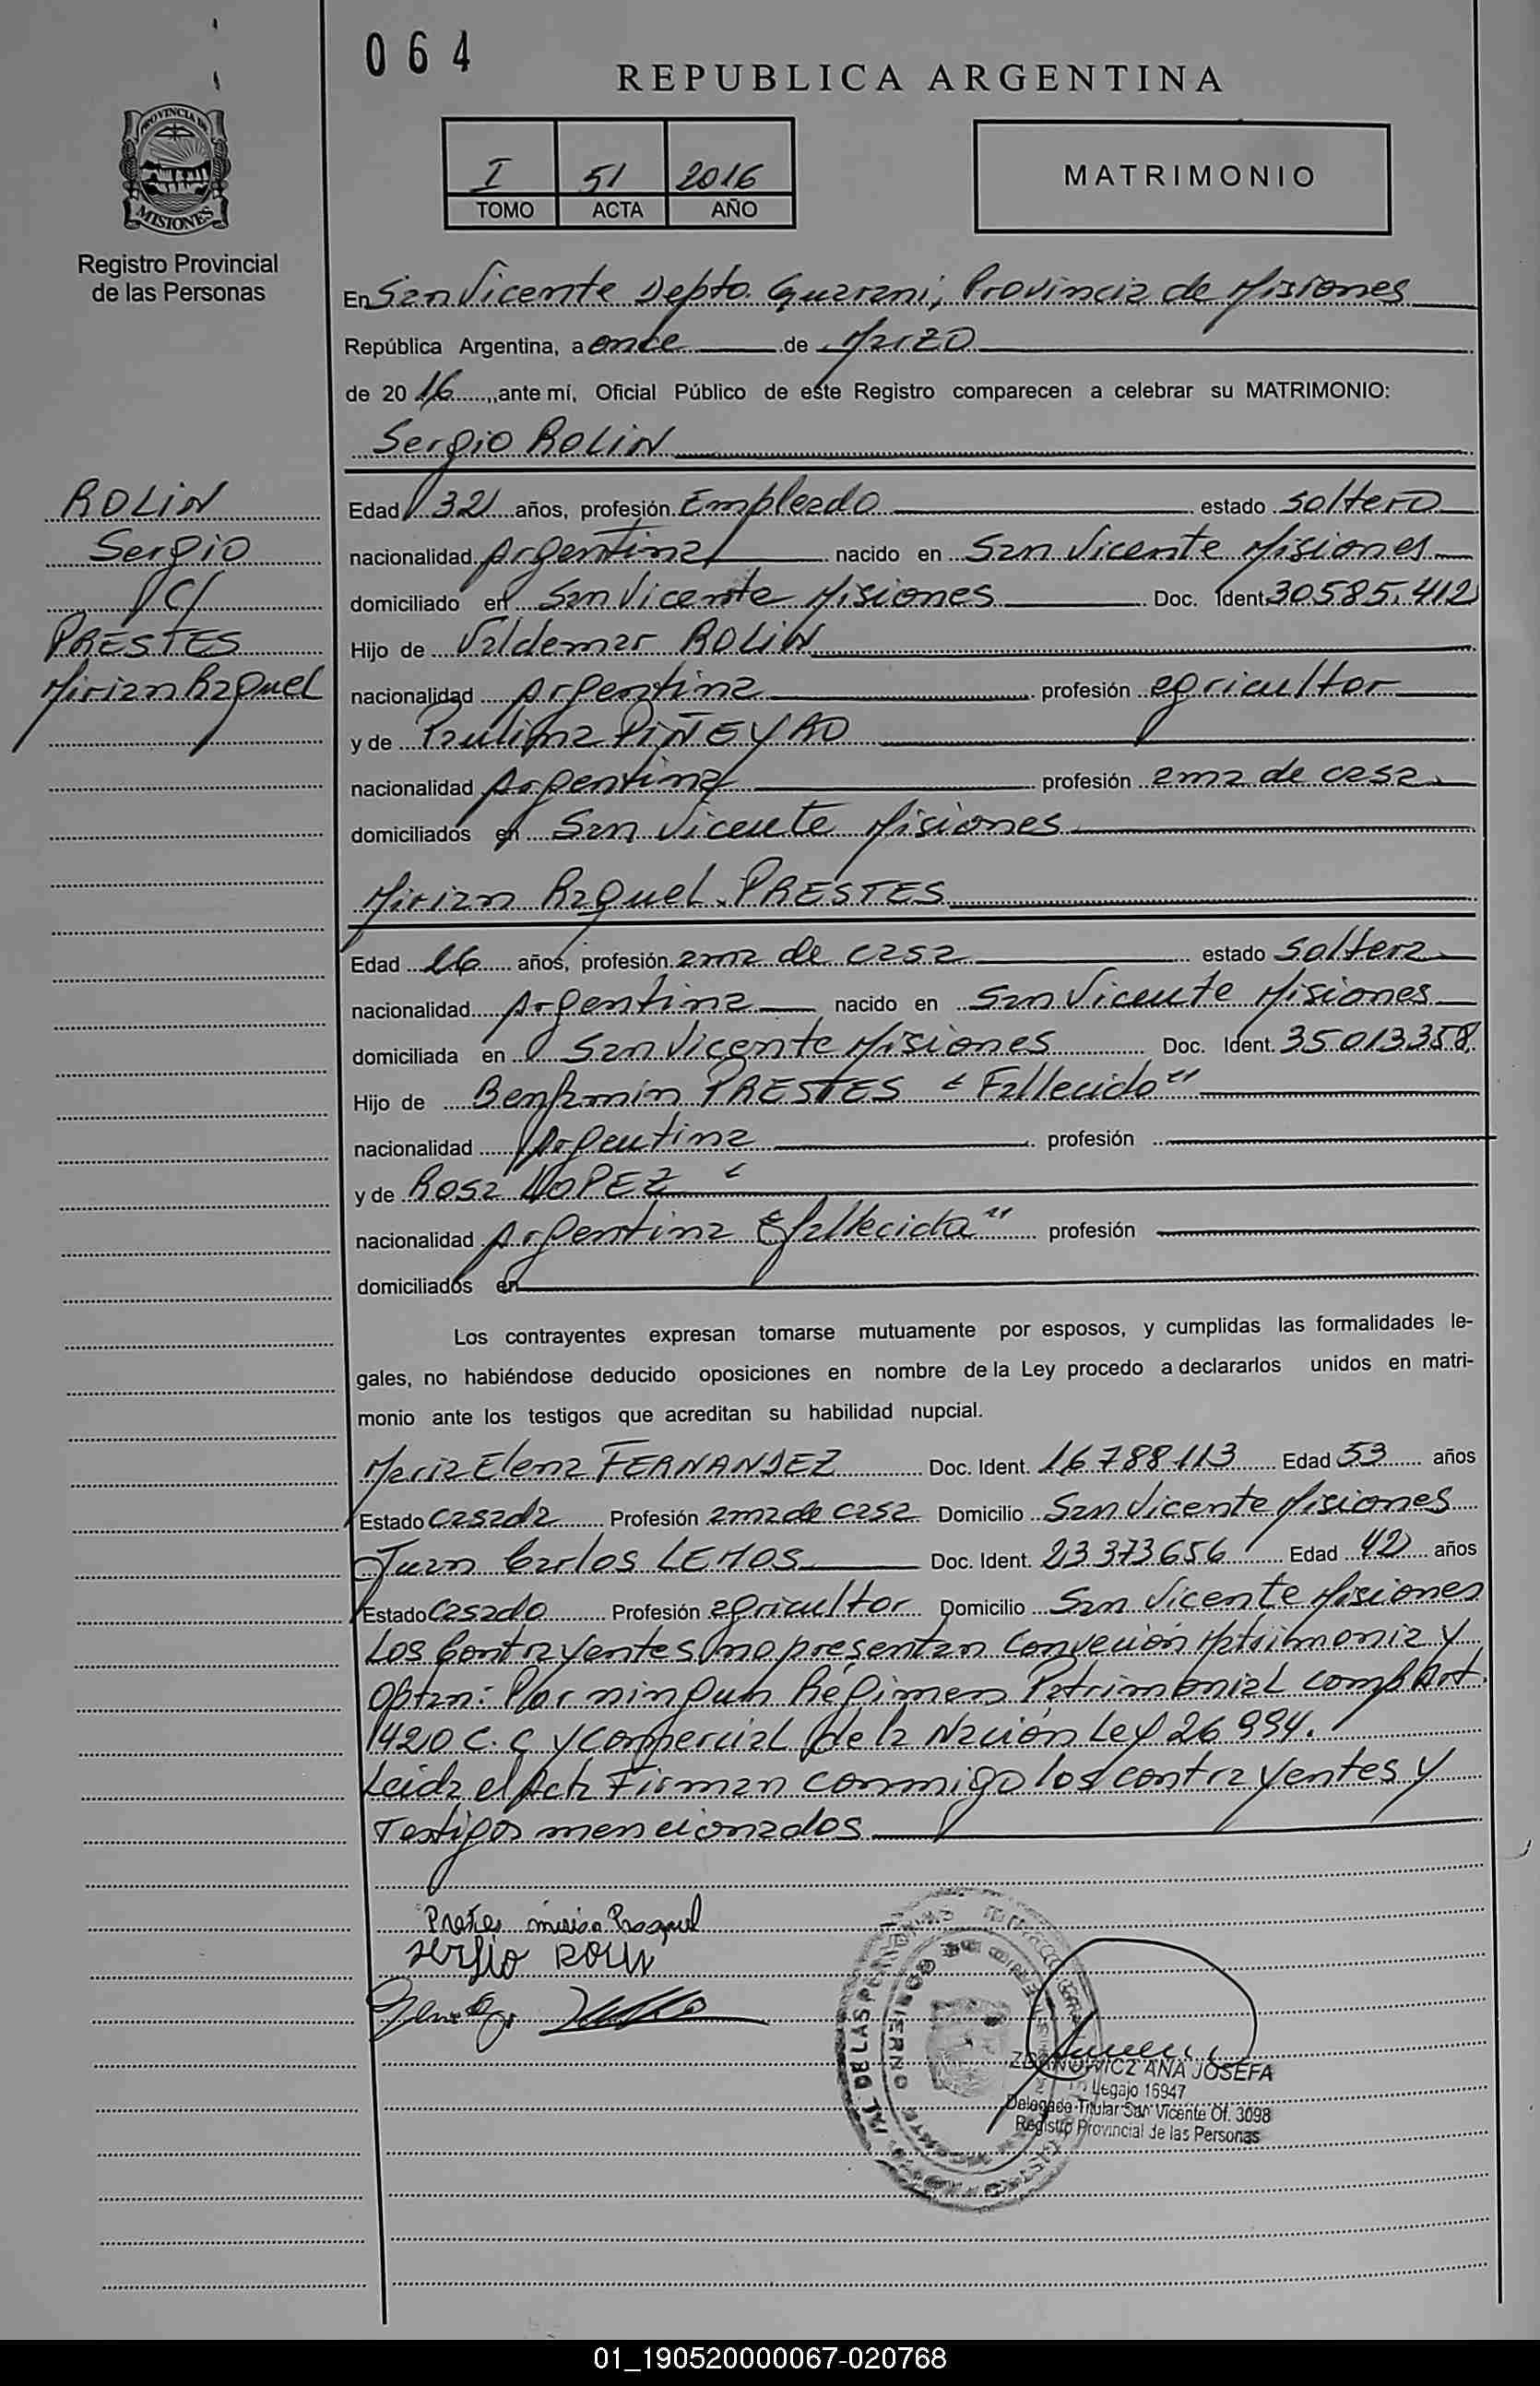 064
REPUBLICA ARGENTINA
I 51 2016
TOMO ACTA AÑO
MATRIMONIO
PROVINCIA DE
MISIONES
Registro Provincial
de las Personas
En San Vicente Depto. Guarani, Provincia de Misiones
República Argentina, a once de Marzo
de 20 16, ante mí, Oficial Público de este Registro comparecen a celebrar su MATRIMONIO:
Sergio ROLIN
ROLIN
Sergio
C/
PRESTES
Mirian Raquel
Edad 32 años, profesión Empleado estado soltero
nacionalidad Argentina nacido en San Vicente Misiones
domiciliado en San Vicente Misiones Doc. Ident. 30585.412
Hijo de Valdemar ROLIN
nacionalidad Argentina profesión agricultor
y de Paulina PIÑEYRO
nacionalidad Argentina profesión ama de casa
domiciliados en San Vicente Misiones
Mirian Raquel PRESTES
Edad 26 años, profesión ama de casa estado soltera
nacionalidad Argentina nacido en San Vicente Misiones
domiciliada en San Vicente Misiones Doc. Ident. 35013358
Hijo de Benjamin PRESTES "Fallecido"
nacionalidad Argentina profesión
y de Rosa LOPEZ
nacionalidad Argentina "fallecida" profesión
domiciliados en
Los contrayentes expresan tomarse mutuamente por esposos, y cumplidas las formalidades le-
gales, no habiéndose deducido oposiciones en nombre de la Ley procedo a declararlos unidos en matri-
monio ante los testigos que acreditan su habilidad nupcial.
Maria Elena FERNANDEZ Doc. Ident. 16788113 Edad 53 años
Estado casada Profesión ama de casa Domicilio San Vicente Misiones
Juan Carlos LEMOS Doc. Ident. 23373656 Edad 42 años
Estado casado Profesión agricultor Domicilio San Vicente Misiones
Los Contrayentes no presentan Conveción Matrimonia y
Optan: Por ningun Régimen Patrimonial conf. Art.
420 C.C y Comercial de la Nación Ley 26994.
Leida el Acta Firman conmigo los contrayentes y
Testigos mencionados
Prestes Raquel
sergio ROLIN
ZDANOWICZ ANA JOSEFA
Legajo 16947
Delegada Titular San Vicente Of. 3098
Registro Provincial de las Personas
01_190520000067-020768